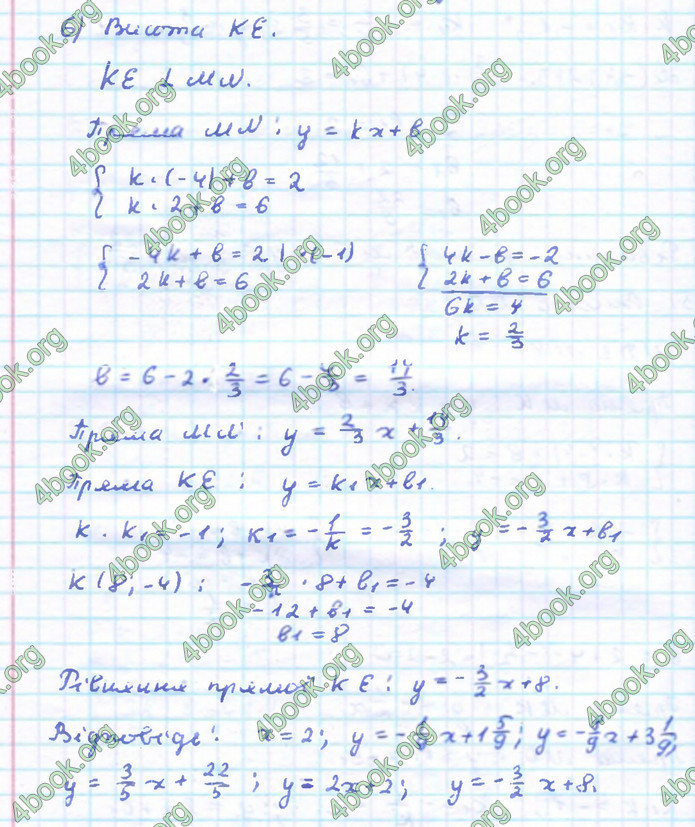 б) Висота KE.
KE ⊥ MN.
Пряма MN: y = kx + b
{ k · (-4) + b = 2
{ k · 2 + b = 6
{ -4k + b = 2 | ·(-1)
{ 2k + b = 6
{ 4k - b = -2
{ 2k + b = 6
6k = 4
k = 2/3
b = 6 - 2 · 2/3 = 6 - 4/3 = 14/3.
Пряма MN: y = 2/3 x + 14/3.
Пряма KE: y = k₁x + b₁.
k · k₁ = -1; k₁ = -1/k = -3/2; y = -3/2 x + b₁
K(8; -4): -3/2 · 8 + b₁ = -4
-12 + b₁ = -4
b₁ = 8
Рівняння прямої KE: y = -3/2 x + 8.
Відповідь: x = 2; y = - /9 x + 1 5/9; y = - /9 x + 3 1/9;
y = 3/5 x + 22/5; y = 2x + 2; y = -3/2 x + 8.
4book.org